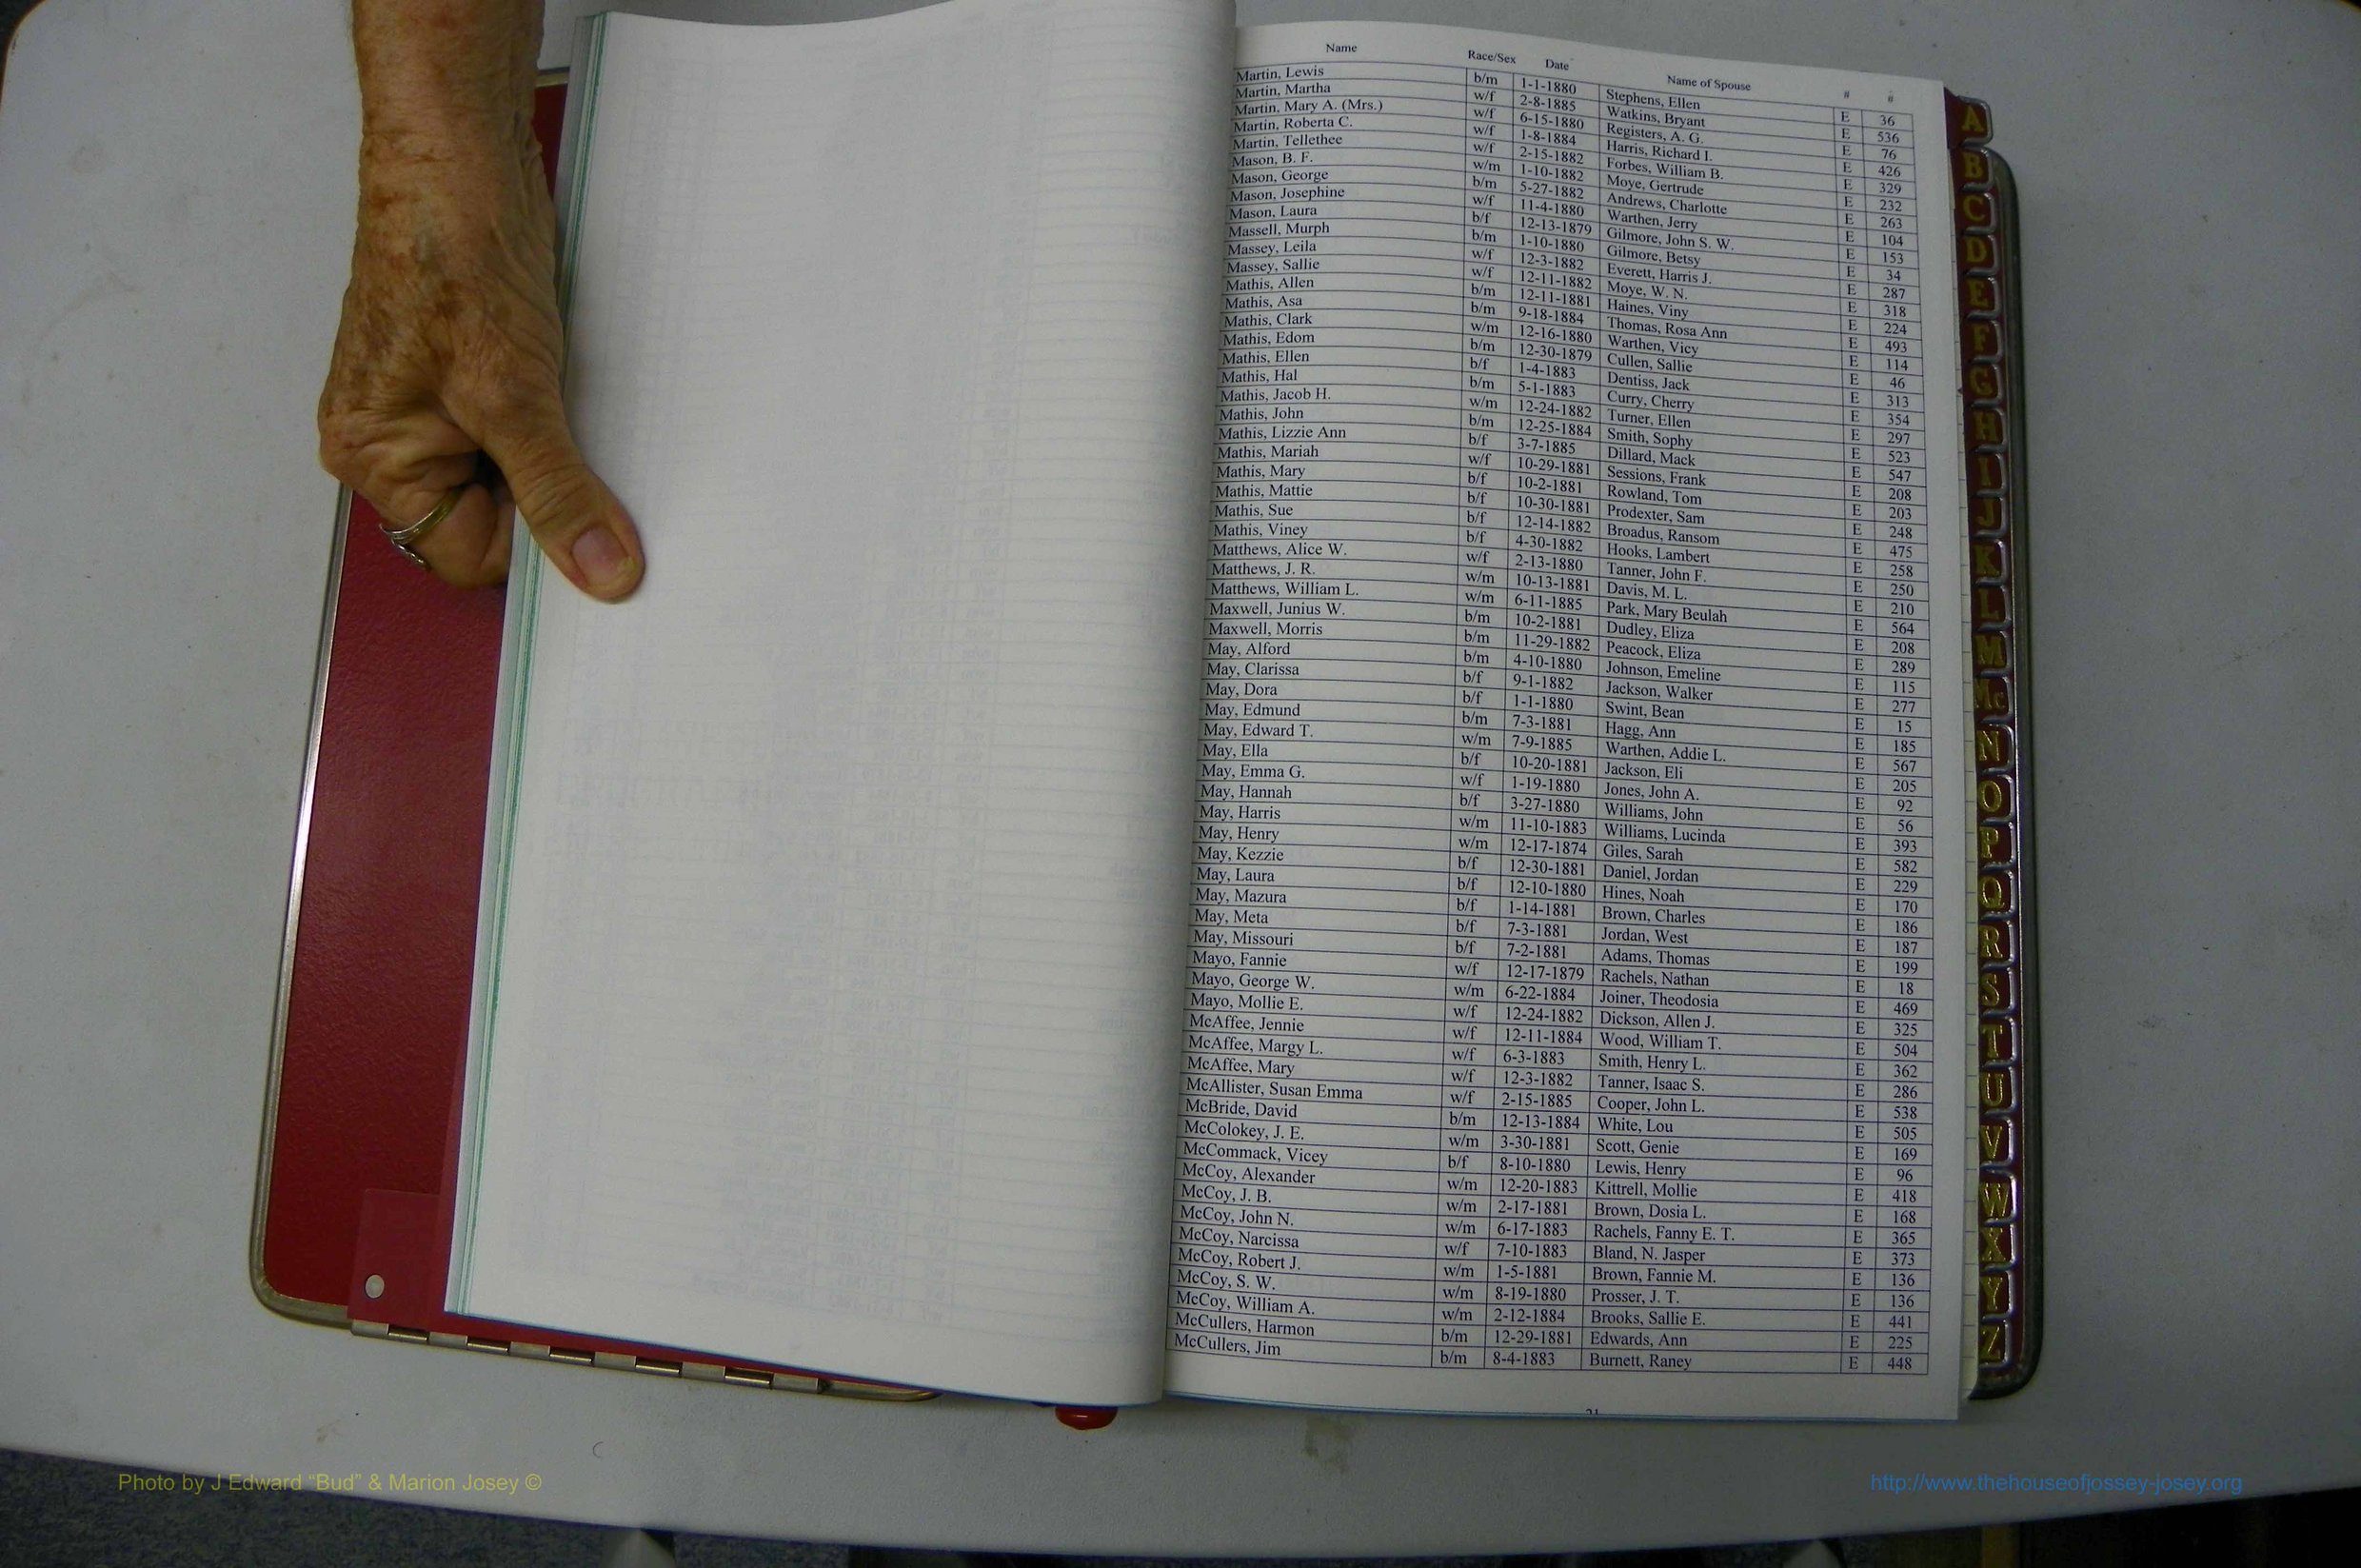 Name Race/Sex Date Name of Spouse # #
Martin, Lewis b/m 1-1-1880 Stephens, Ellen E 36
Martin, Martha w/f 2-8-1885 Watkins, Bryant E 536
Martin, Mary A. (Mrs.) w/f 6-15-1880 Registers, A. G. E 76
Martin, Roberta C. w/f 1-8-1884 Harris, Richard I. E 426
Martin, Tellethee w/f 2-15-1882 Forbes, William B. E 329
Mason, B. F. w/m 1-10-1882 Moye, Gertrude E 232
Mason, George b/m 5-27-1882 Andrews, Charlotte E 263
Mason, Josephine w/f 11-4-1880 Warthen, Jerry E 104
Mason, Laura b/f 12-13-1879 Gilmore, John S. W. E 153
Massell, Murph b/m 1-10-1880 Gilmore, Betsy E 34
Massey, Leila w/f 12-3-1882 Everett, Harris J. E 287
Massey, Sallie w/f 12-11-1882 Moye, W. N. E 318
Mathis, Allen b/m 12-11-1881 Haines, Viny E 224
Mathis, Asa b/m 9-18-1884 Thomas, Rosa Ann E 493
Mathis, Clark w/m 12-16-1880 Warthen, Vicy E 114
Mathis, Edom b/m 12-30-1879 Cullen, Sallie E 46
Mathis, Ellen b/f 1-4-1883 Dentiss, Jack E 313
Mathis, Hal b/m 5-1-1883 Curry, Cherry E 354
Mathis, Jacob H. w/m 12-24-1882 Turner, Ellen E 297
Mathis, John b/m 12-25-1884 Smith, Sophy E 523
Mathis, Lizzie Ann b/f 3-7-1885 Dillard, Mack E 547
Mathis, Mariah w/f 10-29-1881 Sessions, Frank E 208
Mathis, Mary b/f 10-2-1881 Rowland, Tom E 203
Mathis, Mattie b/f 10-30-1881 Prodexter, Sam E 248
Mathis, Sue b/f 12-14-1882 Broadus, Ransom E 475
Mathis, Viney b/f 4-30-1882 Hooks, Lambert E 258
Matthews, Alice W. w/f 2-13-1880 Tanner, John F. E 250
Matthews, J. R. w/m 10-13-1881 Davis, M. L. E 210
Matthews, William L. w/m 6-11-1885 Park, Mary Beulah E 564
Maxwell, Junius W. b/m 10-2-1881 Dudley, Eliza E 208
Maxwell, Morris b/m 11-29-1882 Peacock, Eliza E 289
May, Alford b/m 4-10-1880 Johnson, Emeline E 115
May, Clarissa b/f 9-1-1882 Jackson, Walker E 277
May, Dora b/f 1-1-1880 Swint, Bean E 15
May, Edmund b/m 7-3-1881 Hagg, Ann E 185
May, Edward T. w/m 7-9-1885 Warthen, Addie L. E 567
May, Ella b/f 10-20-1881 Jackson, Eli E 205
May, Emma G. w/f 1-19-1880 Jones, John A. E 92
May, Hannah b/f 3-27-1880 Williams, John E 56
May, Harris w/m 11-10-1883 Williams, Lucinda E 393
May, Henry w/m 12-17-1874 Giles, Sarah E 582
May, Kezzie b/f 12-30-1881 Daniel, Jordan E 229
May, Laura b/f 12-10-1880 Hines, Noah E 170
May, Mazura b/f 1-14-1881 Brown, Charles E 186
May, Meta b/f 7-3-1881 Jordan, West E 187
May, Missouri b/f 7-2-1881 Adams, Thomas E 199
Mayo, Fannie w/f 12-17-1879 Rachels, Nathan E 18
Mayo, George W. w/m 6-22-1884 Joiner, Theodosia E 469
Mayo, Mollie E. w/f 12-24-1882 Dickson, Allen J. E 325
McAffee, Jennie w/f 12-11-1884 Wood, William T. E 504
McAffee, Margy L. w/f 6-3-1883 Smith, Henry L. E 362
McAffee, Mary w/f 12-3-1882 Tanner, Isaac S. E 286
McAllister, Susan Emma w/f 2-15-1885 Cooper, John L. E 538
McBride, David b/m 12-13-1884 White, Lou E 505
McColokey, J. E. w/m 3-30-1881 Scott, Genie E 169
McCommack, Vicey b/f 8-10-1880 Lewis, Henry E 96
McCoy, Alexander w/m 12-20-1883 Kittrell, Mollie E 418
McCoy, J. B. w/m 2-17-1881 Brown, Dosia L. E 168
McCoy, John N. w/m 6-17-1883 Rachels, Fanny E. T. E 365
McCoy, Narcissa w/f 7-10-1883 Bland, N. Jasper E 373
McCoy, Robert J. w/m 1-5-1881 Brown, Fannie M. E 136
McCoy, S. W. w/m 8-19-1880 Prosser, J. T. E 136
McCoy, William A. w/m 2-12-1884 Brooks, Sallie E. E 441
McCullers, Harmon b/m 12-29-1881 Edwards, Ann E 225
McCullers, Jim b/m 8-4-1883 Burnett, Raney E 448
A
B
C
D
E
F
G
H
I
J
K
L
M
Mc
N
O
P
Q
R
S
T
U
V
W
X
Y
Z
Photo by J Edward “Bud” & Marion Josey ©
http://www.thehouseofjossey-josey.org